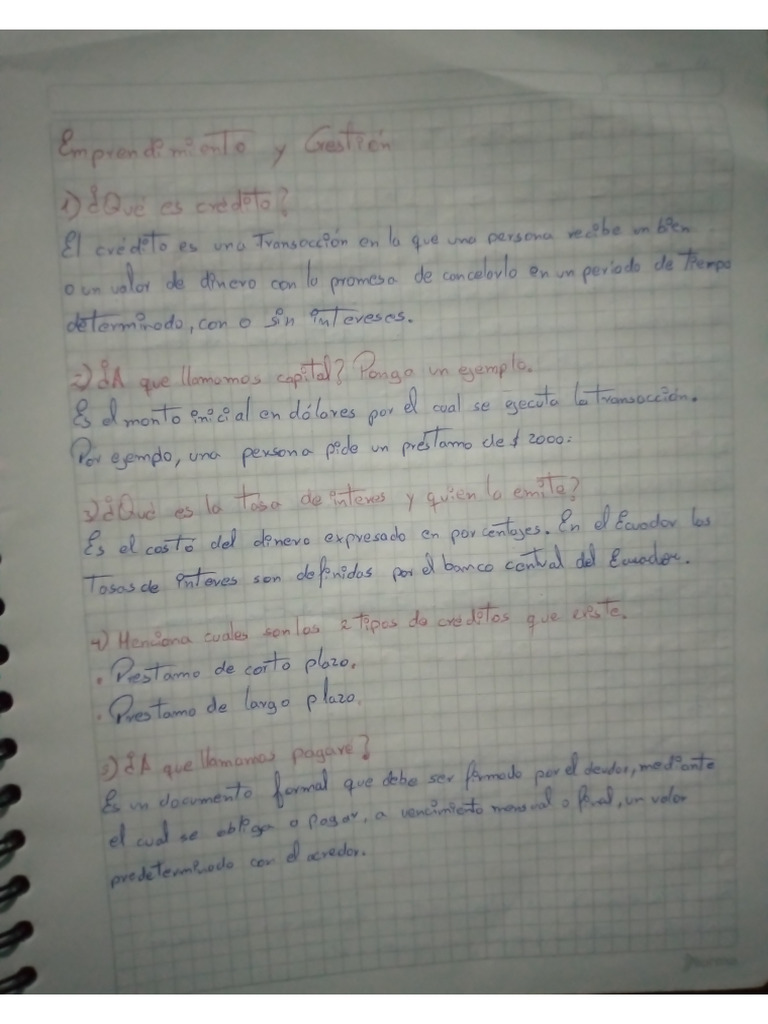 Emprendimiento y Gestión
1) ¿Qué es crédito?
El crédito es una Transacción en la que una persona recibe un bien
o un valor de dinero con la promesa de cancelarlo en un periodo de Tiempo
determinado, con o sin intereses.
2) ¿A que llamamos capital? Ponga un ejemplo.
Es el monto inicial en dólares por el cual se ejecuta la transacción.
Por ejemplo, una persona pide un préstamo de $ 2000.
3) ¿Qué es la tasa de interes y quien la emite?
Es el costo del dinero expresado en porcentajes. En el Ecuador las
Tasas de interes son definidas por el banco central del Ecuador.
4) Menciona cuales son los 2 tipos de créditos que existe.
• Prestamo de corto plazo.
• Prestamo de largo plazo.
5) ¿A que llamamos pagaré?
Es un documento formal que debe ser firmado por el deudor, mediante
el cual se obliga a pagar, a vencimiento mensual o final, un valor
predeterminado con el acredor.